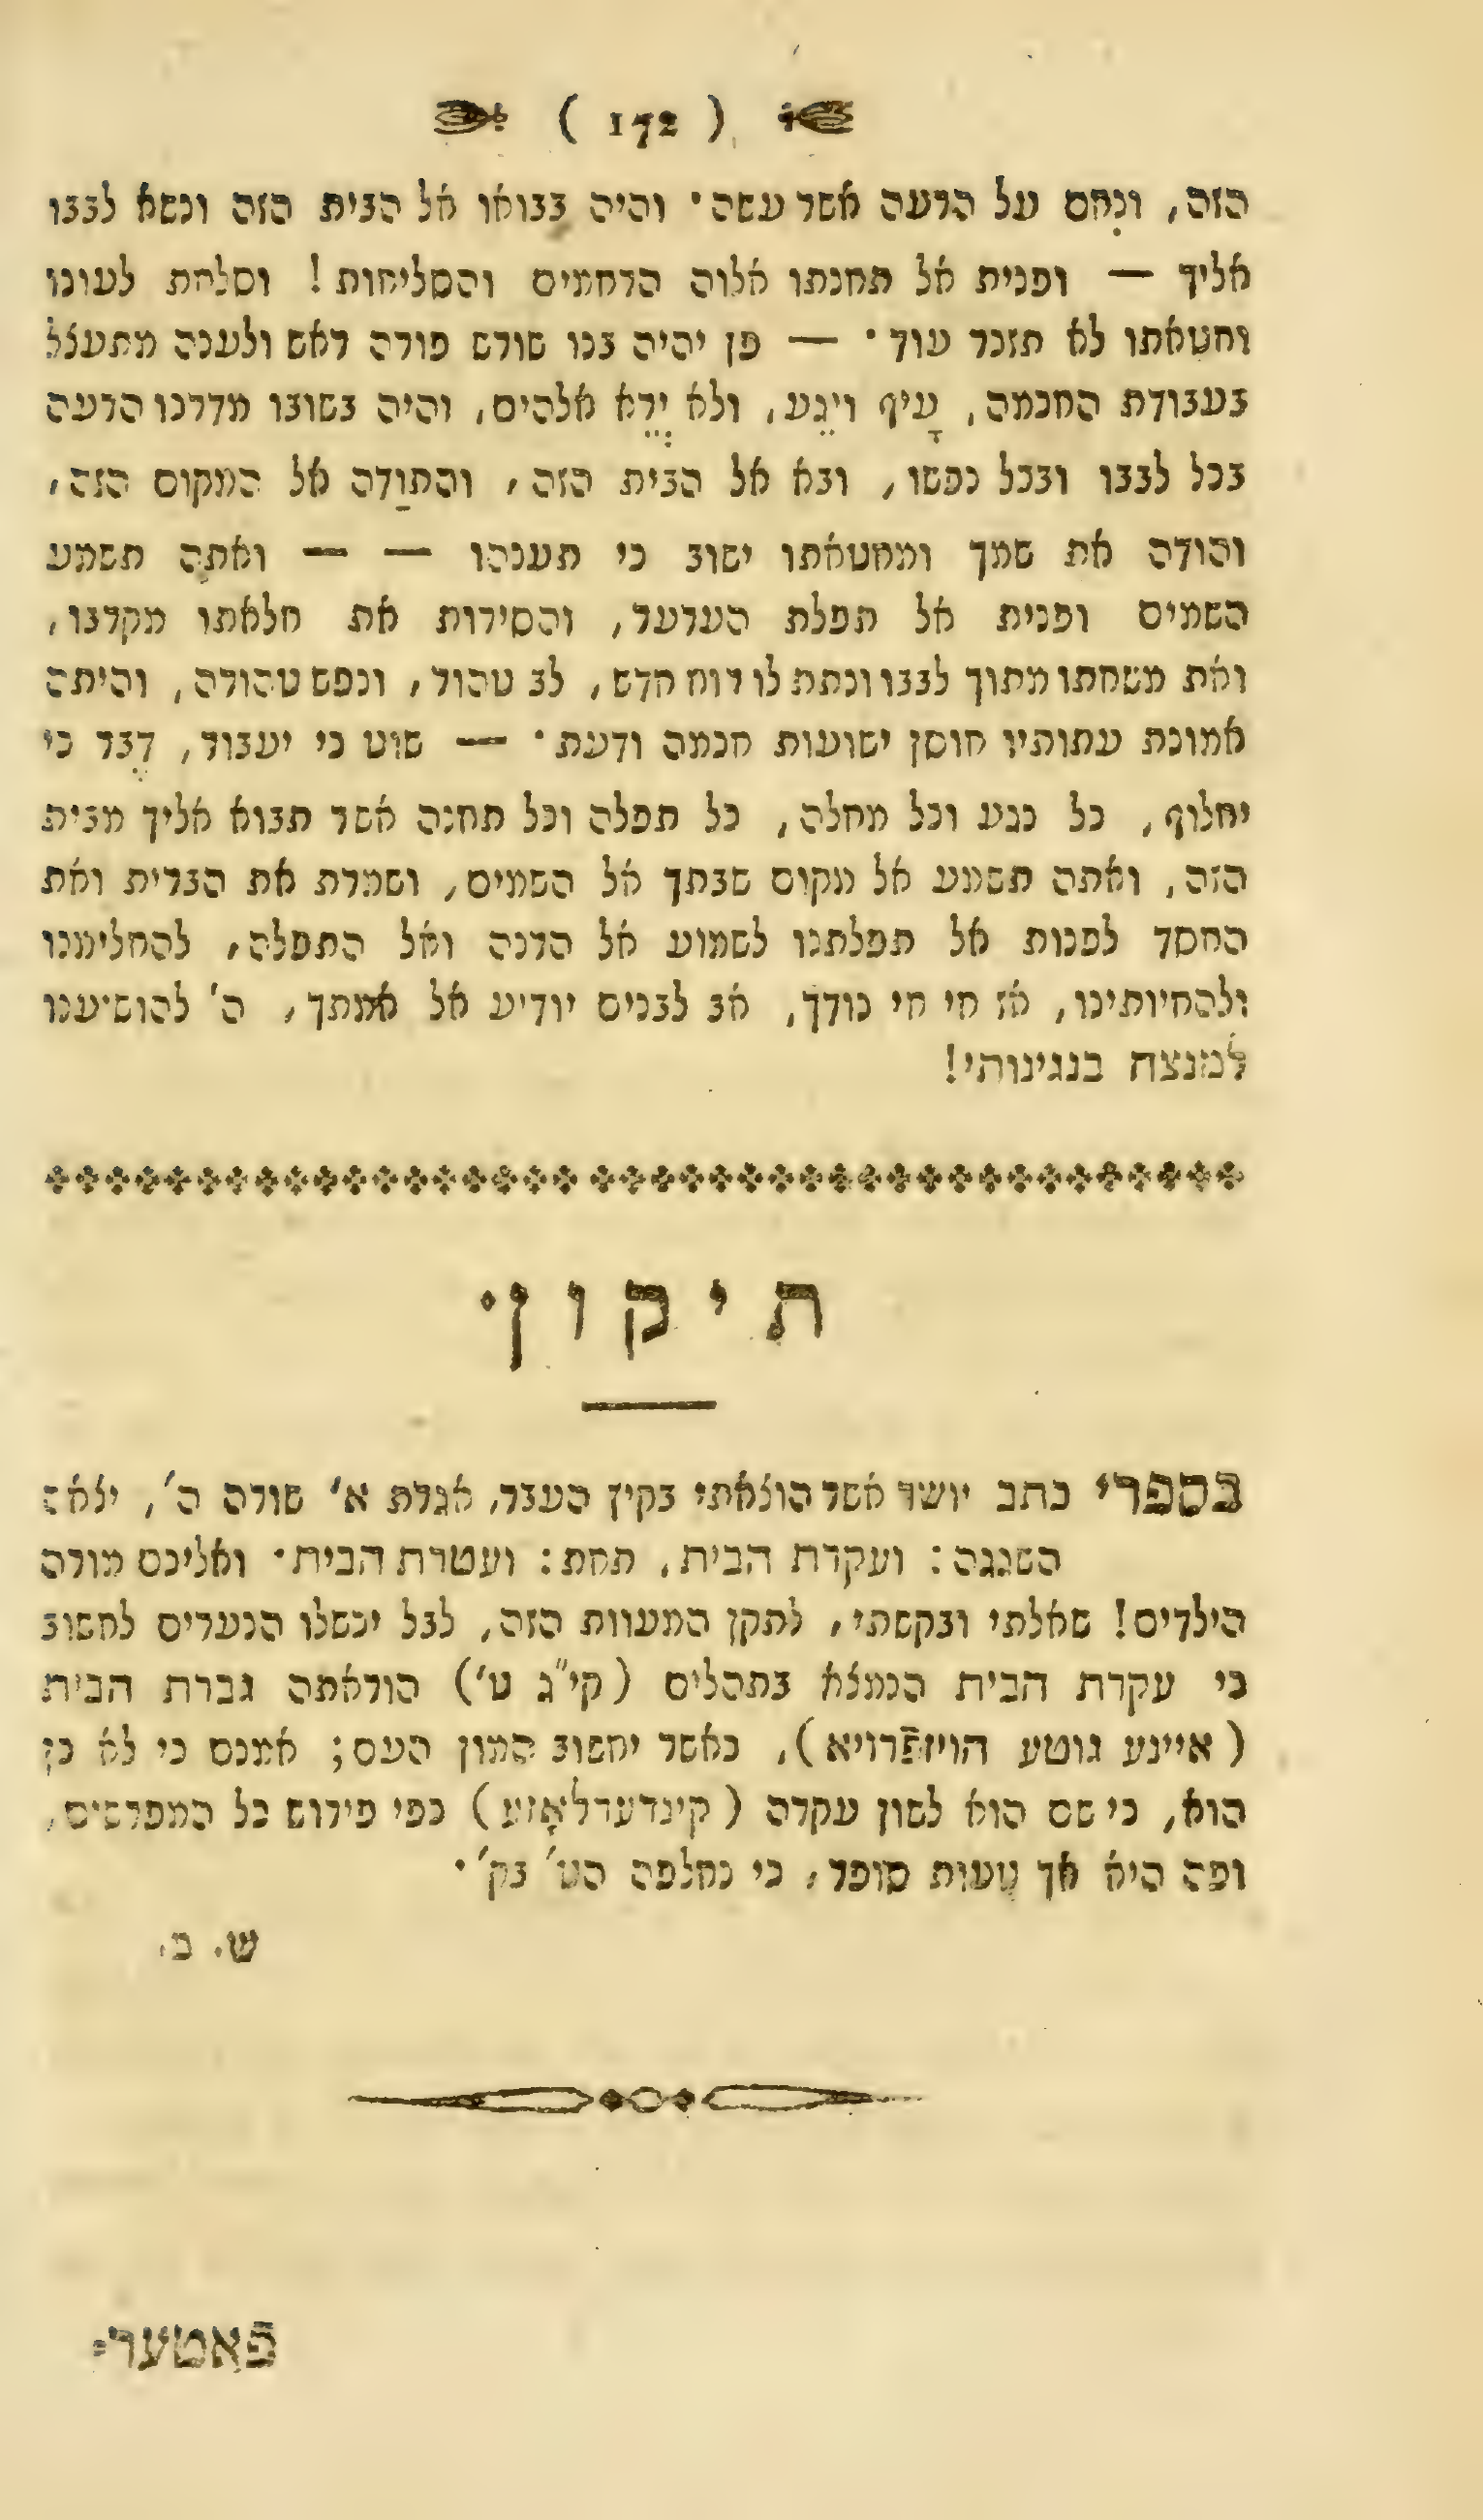 ( 172 )
הזה, ונִחם על הרעה אשר עשה· והיה בבואו אל הבית הזה ונשא לבבו
אליך — ופנית אל תחנתו אלוה הרחמים והסליחות! וסלחת לעונו
וחטאתו לא תזכר עוד· — פן יהיה בנו שורש פורה ראש ולענה מתעצל
בעבודת החכמה, עָיף ויגֵע, ולא יֱרֵא אלהים, והיה בשובו מדרכו הרעה
בכל לבבו ובכל נפשו, ובא אל הבית הזה, והתוַדה אל המקום הזה,
והודה את שמך ומחטאתו ישוב כי תענהו — — ואתה תשמע
השמים ופנית אל תפלת הערער, והסירות את חלאתו מקרבו,
ואת משחתו מתוך לבבו ונתת לו רוח חדש, לב טהור, ונפש טהורה, והיתה
אמונת עתותיו חוסן ישועות חכמה ודעת· — שוט כי יעבור, דֶבר כי
יחלוף, כל נגע וכל מחלה, כל תפלה וכל תחנה אשר תבוא אליך מבית
הזה, ואתה תשמע אל מקום שבתך אל השמים, ושמרת את הברית ואת
החסד לפנות אל תפלתנו לשמוע אל הרנה ואל התפלה, להחלימנו
ולהחיותינו, אז חי חי נודך, אב לבנים יודיע אל אמתך, ה' להושיענו
למנצח בנגינותי!
תיקון·
בספרי כתב יושר אשר הוצאתי בקיץ העבר, אגרת א' שורה ה', יצאה
השגגה: ועקרת הבית, תחת: ועטרת הבית· ואליכם מורה
הילדים! שאלתי ובקשתי, לתקן המעוות הזה, לבל יכשלו הנערים לחשוב
כי עקרת הבית הנמצא בתהלים (קי"ג ט') הוראתה גברת הבית
(איינע גוטע הויזפֿרויא), כאשר יחשוב המון העם; אמנם כי לא כן
הוא, כי שם הוא לשון עקרה (קינדערלאָזע) כפי פירוש כל המפרשים,
ופה היא אך טעות סופר, כי נחלפה הט' בק'·
ש. ב.
פֿאטער⸗